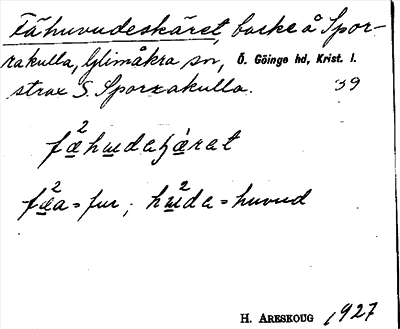 Fähuvudeskäret, backe å Spor-
rakulla, Glimåkra sn, Ö. Göinge hd, Krist. l.
strax S. Sporrakulla. 39
fæ²hɯdaʃærat
fæ²a = fur ; hɯ²da = huvud
H. ARESKOUG 1927